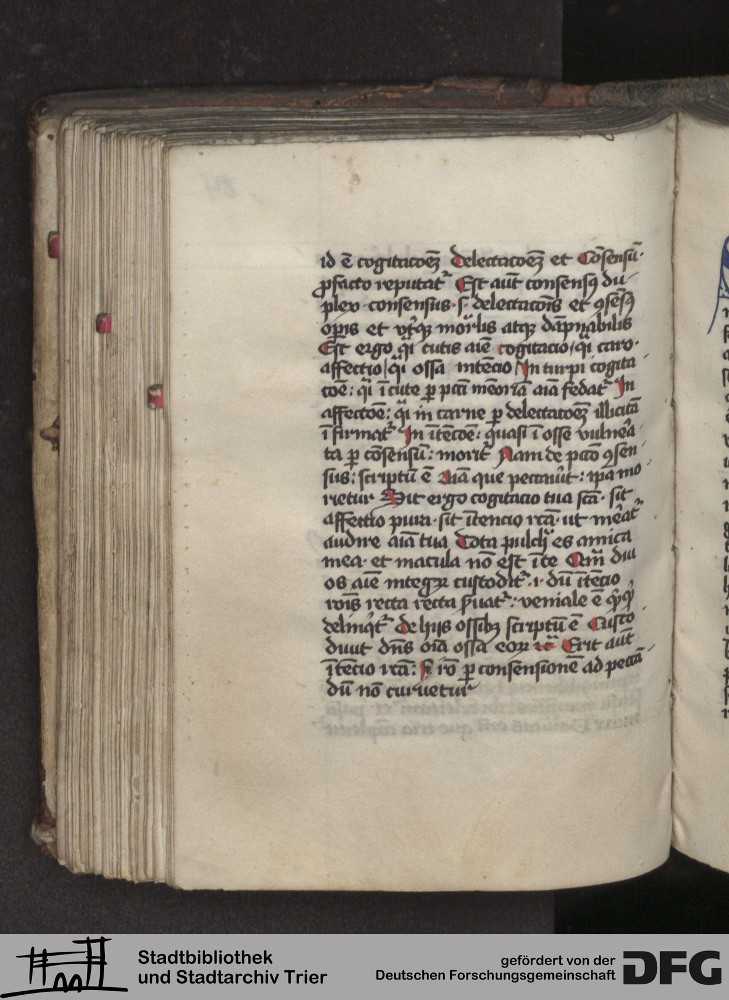 id ē cogitacōeꝫ delectacōeꝫ et Cōsensū·
ꝓfacto reputat᷑ Est aūt consensꝯ du
plex· consensus ·s· delectacōis et ꝯsēsꝯ
oꝑis et vtꝵqꝫ mor̄lis atqꝫ dāpnabilis
Est ergo q̄i cutis aīe cogitacio q̄i caro·
affectio q̄i ossa intēcio In turpi cogita
cōe: q̄i ī cute ꝑ pctī mēoriā aīa fedat᷑ In
affectōe: q̄i in carne ꝑ delectatōeꝫ illicitā
īfirmat᷑ In ītēcōe: quasi ī osse vulne͛a
ta ꝑ cōsensū: morit᷑ Nam de pctō ꝯsen
sus: scriptū ē Aīa que peccau͛it: ip̄a mo
rietur Sit ergo cogitacio tua sctā· sit
affectio pura· sit ītencio rctā· ut me͛at᷑
audire aīa tua Tota pulch͛ es amica
mea· et macula nō est ī te Qm̄ diu
os aīe integꝝ custodit᷑ ·i· dū ītēcio
rōis recta recta ẜuat᷑: veniale ē
delinqͥt᷑ De hijs ossibꝫ scriptū ē Custo
diuit dn̄s oīa ossa eoꝝ Erit aūt
ītēcio rctā: rō ꝑ consensionē ad peccā
dū nō curuetur
Stadtbibliothek
und Stadtarchiv Trier
gefördert von der
Deutschen Forschungsgemeinschaft
DFG